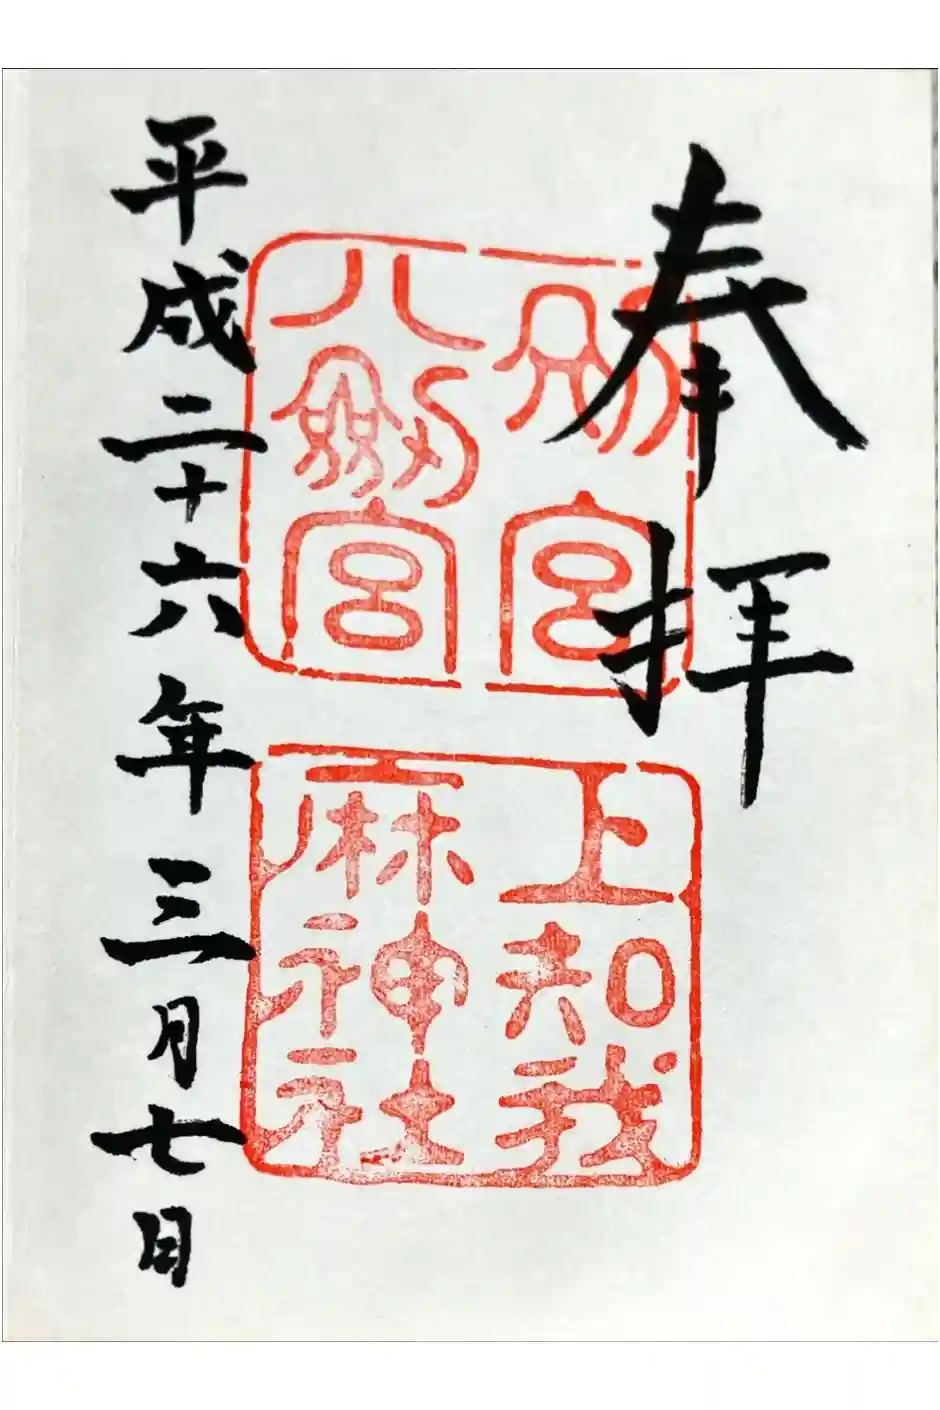 奉拝
別宮
八劔宮
上知我
麻神社
平成二十六年三月七日